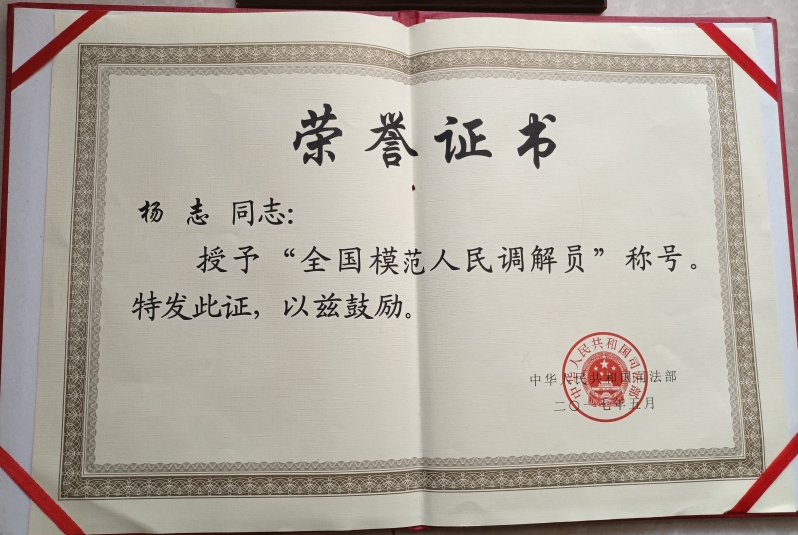 荣誉证书
杨志 同志:
授予“全国模范人民调解员”称号。
特发此证，以兹鼓励。
中华人民共和国司法部
二〇一七年五月
中华人民共和国司法部